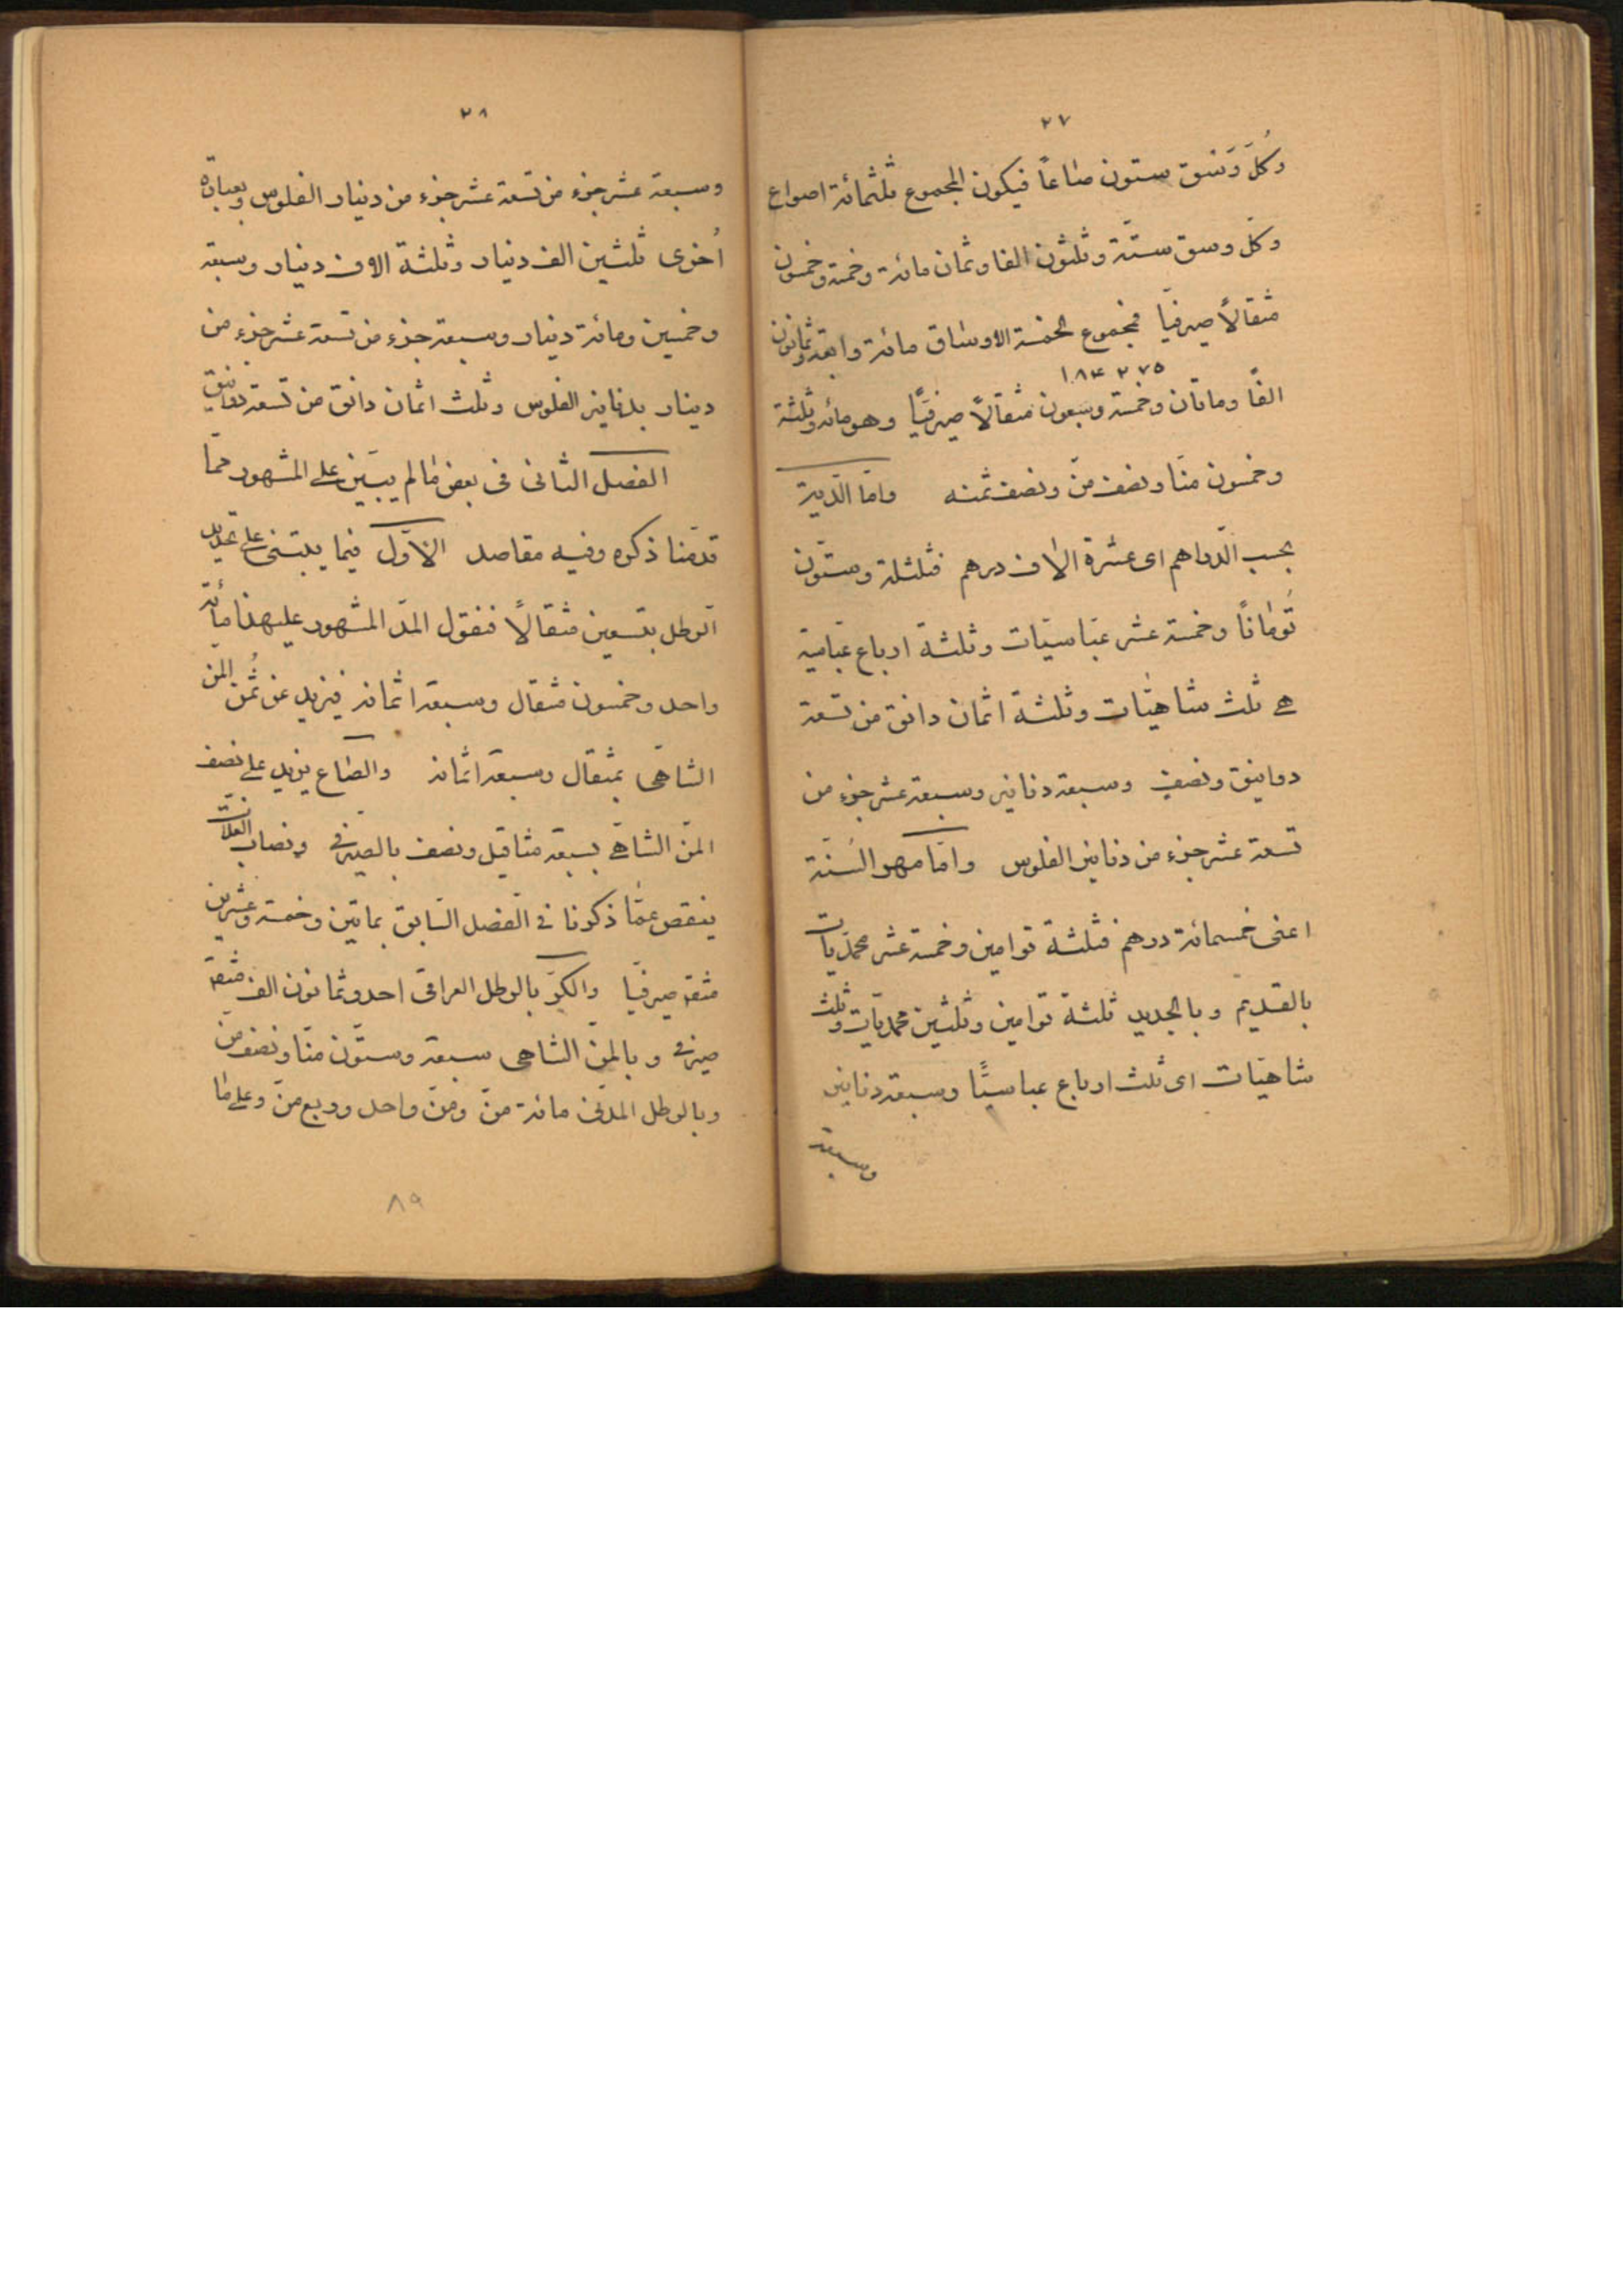 ٢٧
وكلّ وَسَق ستون صاعاً فيكون المجموع ثلثمائة اصواع
وكلّ وسق ستّة وثلثون الفا وثمان مائة وخمسة وخمسون
مثقالاً صيرفيّا فمجموع الخمسة الاوساق مائة واربعة وثمانون
١٨۴٢٧٥
الفاً وماتان وخمسة وسبعون مثقالاً صيرفيّاً وهو مائة وثلثة
وخمسون منّا ونصف منّ ونصف ثمنه وامّا الدّية
بحسب الدّراهم اى عشرة الاف درهم فثلثلة وستّون
تُوماناً وخمسة عشر عبّاسيّات وثلثة ارباع عبّاسية
هے ثلث شاهيّات وثلثة اثمان دانق من تسعة
دوانيق ونصف وسبعة دنانير وسبعة عشر جزء من
تسعة عشر جزء من دنانير الفلوس وامّا مهر السُنّة
اعنى خمسمائة درهم فثلثة توامين وخمسة عشر محمّديات
بالقديم وبالجديد ثلثة توامين وثلثين محمديّات وثلث
شاهيّات اى ثلث ارباع عباسيًّا وسبعة دنانير
وسبعة
٢٨
وسبعة عشر جزء من تسعة عشر جزء من دينار الفلوس وبعبارة
اُخرى ثلثين الف دينار وثلثة الاف دينار وسبعة
وخمسين ومائة دينار وسبعة جزء من تسعة عشر جزء من
دينار بدنانير الفلوس وثلث اثمان دانق من تسعة دوانيق
الفصل الثانى فى بعض مالم يبيّن على المشهور ممّا
قدّمنا ذكره وفيه مقاصد الاوّل فيما يبتنى على تحديد
الرطل بتسعين مثقالاً فنقول المدّ المشهور على هذا مأئة
واحد وخمسون مثقال وسبعة اثمانه فيزيد عن ثُمن المن
الشاهى بمثقال وسبعة اثمانه والصّاع يزيد على نصف
المنّ الشاهے بسبعة مثاقيل ونصف بالصّيرفى ونصاب الغلّات
ينقص عمّا ذكرنا فى الفصل السّابق بماتين وخمسة وعشرين
مثقہ صيرفيّا والكرّ بالرطل العراقى احد وثمانون الف مثقہ
صيرفى وبالمنّ الشاهى سبعة وستّون منّا ونصف منّ
وبالرطل المدنى مائة منّ ومنّ واحد وربع منّ وعلى ما
٨٩